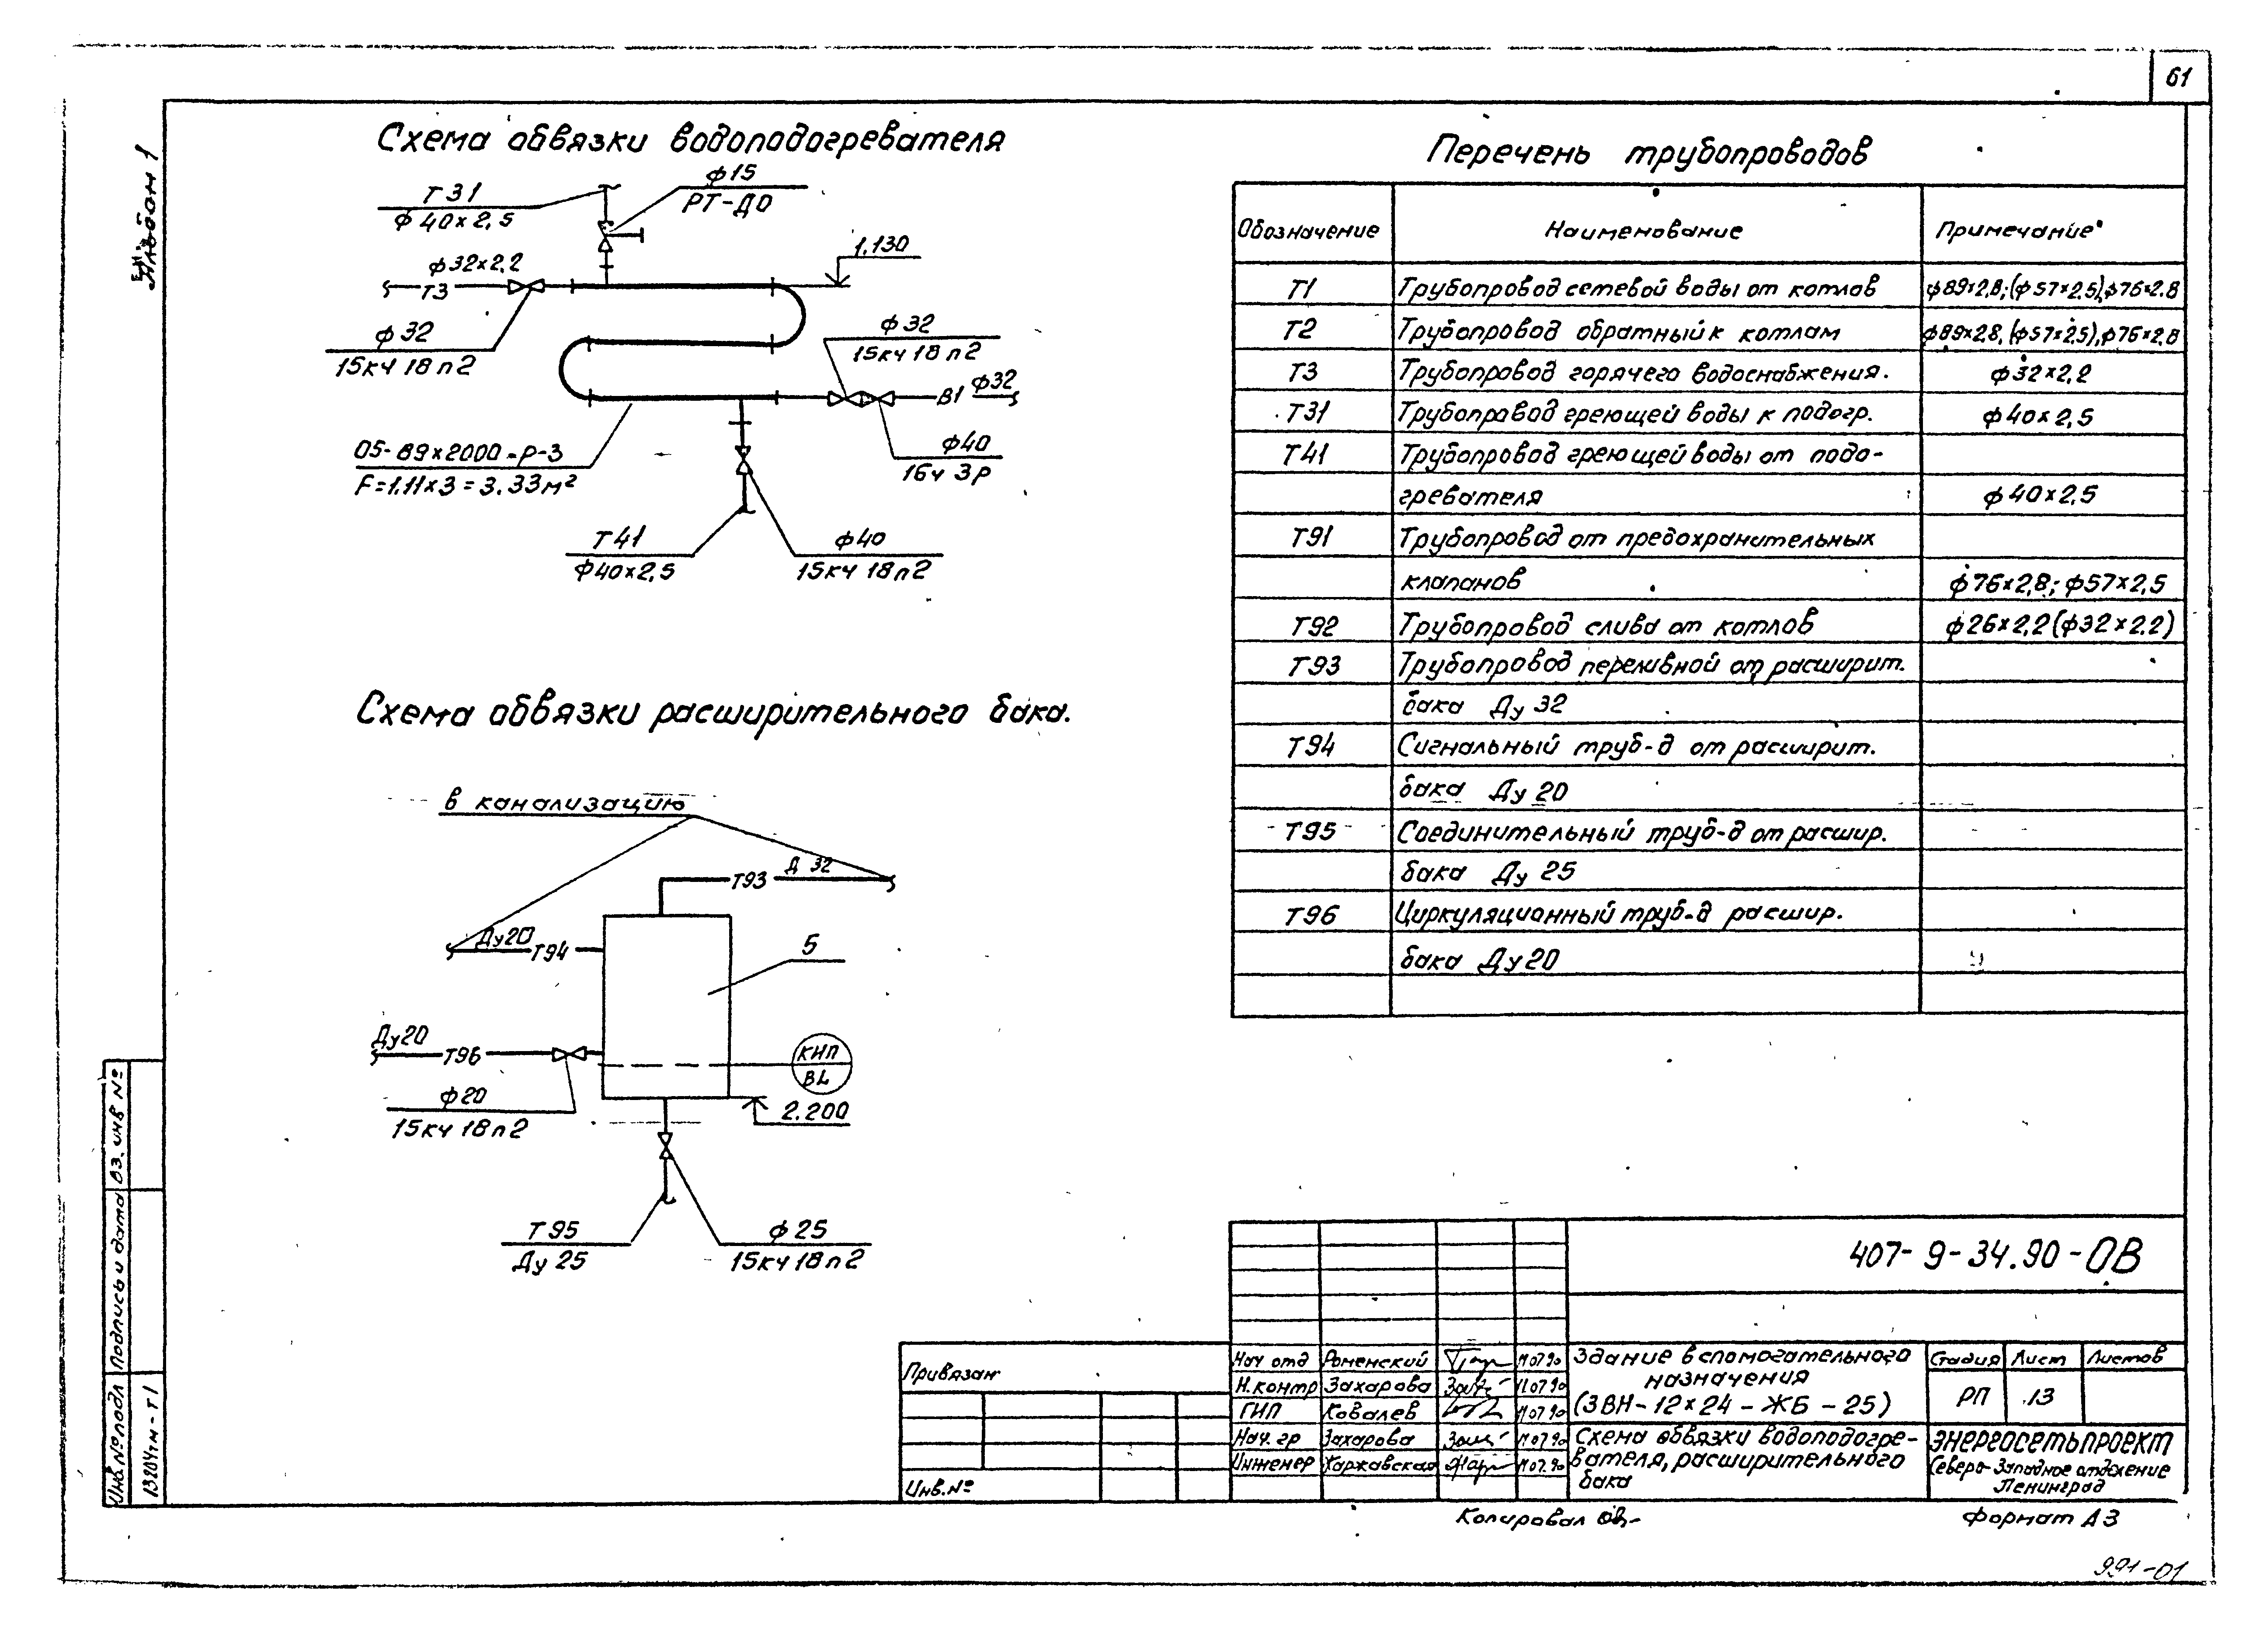 61
Альбом 1
Схема обвязки водоподогревателя
Т31
ф 40×2,5
ф15
РТ-Д0
1.130
ф32×2,2
Т3
ф 32
15кч 18 п2
ф 32
15кч 18 п2
В1 ф32
ф40
16ч 3р
05-89×2000-Р-3
F=1.11×3=3.33м²
Т41
ф40×2,5
ф40
15кч 18п2
Схема обвязки расширительного бака.
в канализацию
Т93 Д 32
Ду20
Т94
5
Ду20
Т96
КИП
BL
ф20
15кч 18п2
2.200
Т95
Ду 25
ф 25
15кч 18п2
Перечень трубопроводов
Обозначение Наименование Примечание
Т1 Трубопровод сетевой воды от котлов ф89×2,8;(ф57×2,5),ф76×2.8
Т2 Трубопровод обратный к котлам ф89×2,8,(ф57×2,5),ф76×2,8
Т3 Трубопровод горячего водоснабжения. ф32×2,2
Т31 Трубопровод греющей воды к подогр. ф40×2,5
Т41 Трубопровод греющей воды от подо-
гревателя ф40×2,5
Т91 Трубопровод от предохранительных
клапанов ф76×2,8; ф57×2,5
Т92 Трубопровод слива от котлов ф26×2,2(ф32×2.2)
Т93 Трубопровод переливной от расширит.
бака Ду 32
Т94 Сигнальный труб-д от расширит.
бака Ду 20
Т95 Соединительный труб-д от расшир.
бака Ду 25
Т96 Циркуляционный труб-д расшир.
бака Ду20
407-9-34.90-ОВ
Привязан
Инв.№
Нач отд Роменский 11 07 90
Н.контр Захарова 11.07.90
ГИП Ковалев 11.07.90
Нач. гр Захарова 11 07.90
Инженер Харжавская 11 07.90
Здание вспомогательного
назначения
(ЗВН-12×24-ЖБ-25)
Стадия Лист Листов
РП 13
Схема обвязки водоподогре-
вателя, расширительного
бака
ЭНЕРГОСЕТЬПРОЕКТ
Северо-Западное отделение
Ленинград
Копировал
Формат А3
991-01
Инв № подл Подпись и дата Вз. инв №
13204тм-т1